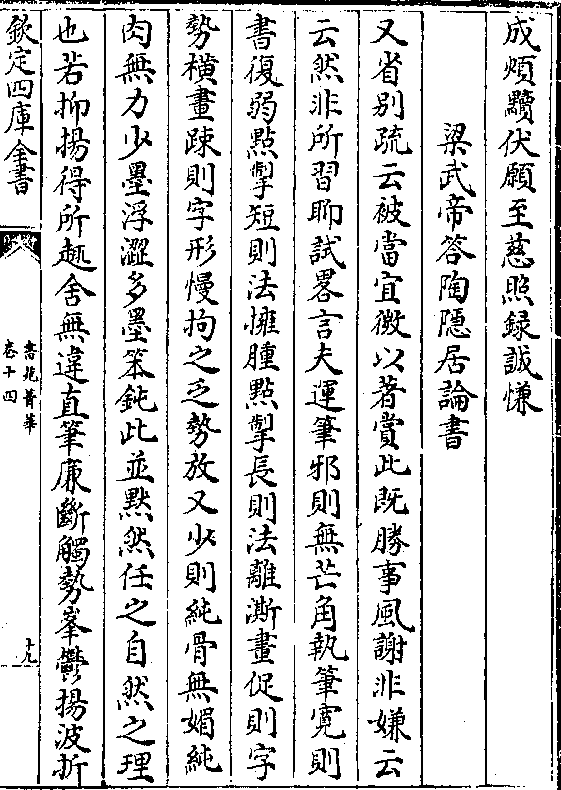 成煩黷伏願至慈照録誠慊
梁武帝答陶隱居論書
又省别疏云被當宜微以著賞此既勝事風謝非嫌云
云然非所習聊試畧言夫運筆邪則無芒角執筆寛則
書復弱點掣短則法擁腫點掣長則法離澌畫促則字
勢横畫踈則字形慢拘之乏勢放又少則純骨無媚純
肉無力少墨浮澀多墨笨鈍此並黙然任之自然之理
也若抑揚得所趣舍無違直筆廉斷觸勢峯鬱揚波折
欽定四庫全書
書苑菁華
卷十四
十九